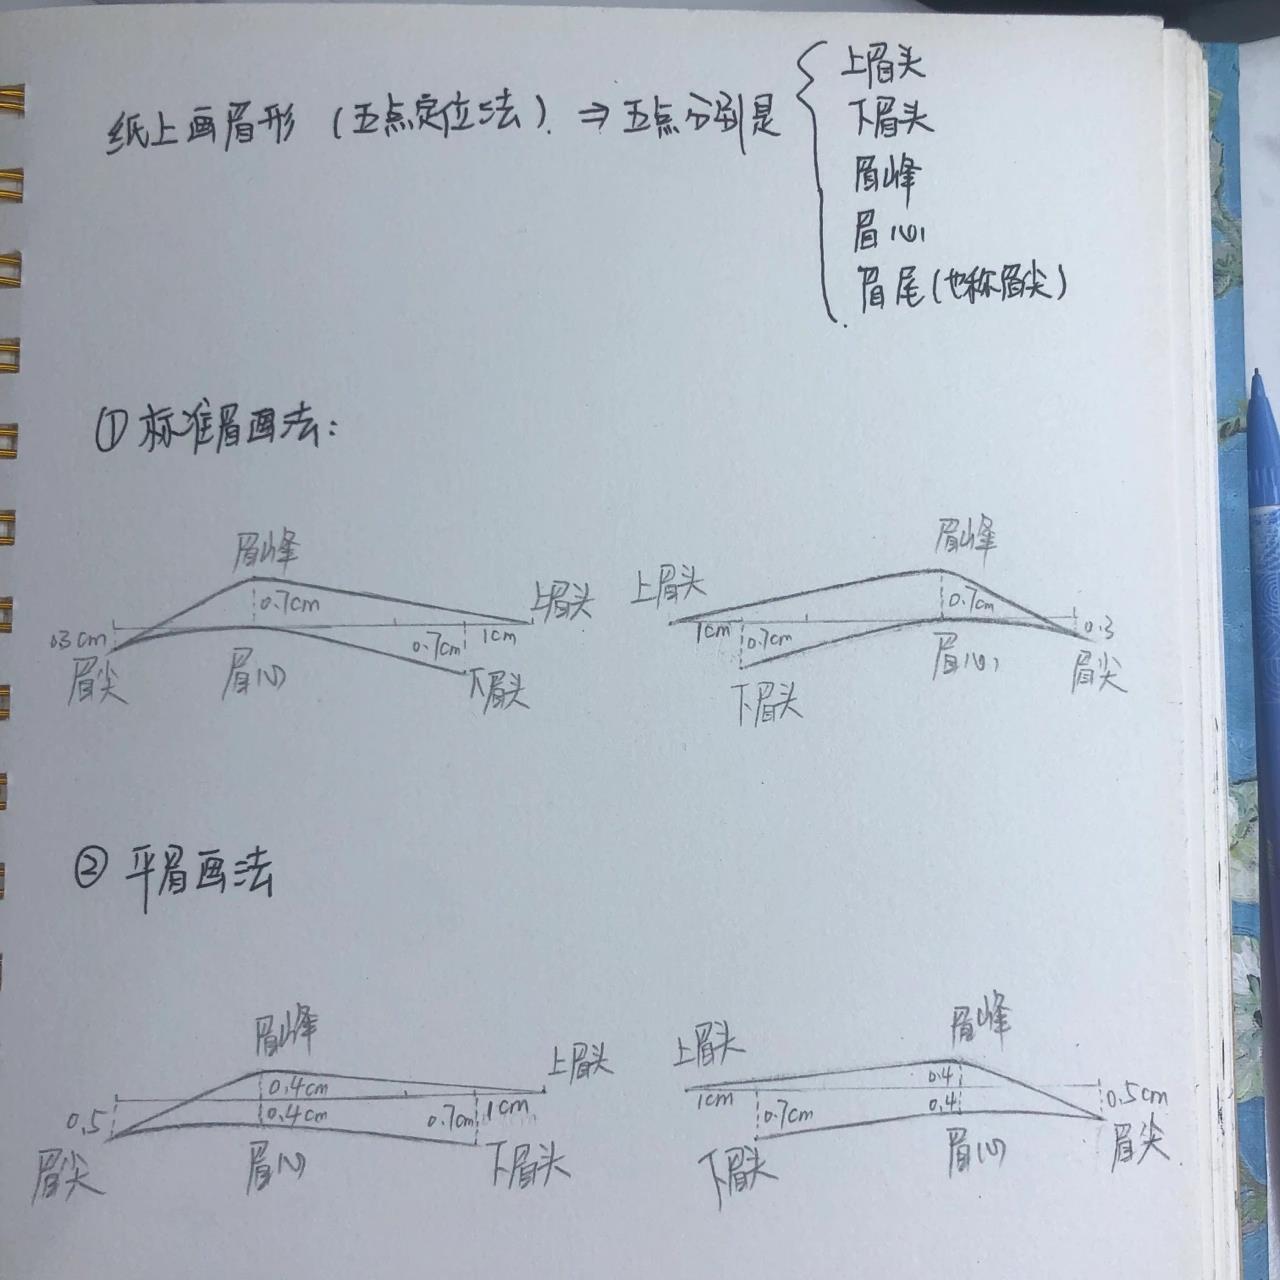 纸上画眉形（五点定位法）. ⇒ 五点分别是
上眉头
下眉头
眉峰
眉心
眉尾(也称眉尖)
① 标准眉画法：
眉峰
0.7cm
上眉头
0.3cm
0.7cm
1cm
眉尖
眉心
下眉头
眉峰
上眉头
0.7cm
1cm
0.7cm
0.3
眉心
眉尖
下眉头
② 平眉画法
眉峰
上眉头
0.4cm
0.5
0.4cm
0.7cm
1cm
眉尖
眉心
下眉头
眉峰
上眉头
0.4
1cm
0.7cm
0.4
0.5cm
下眉头
眉心
眉尖